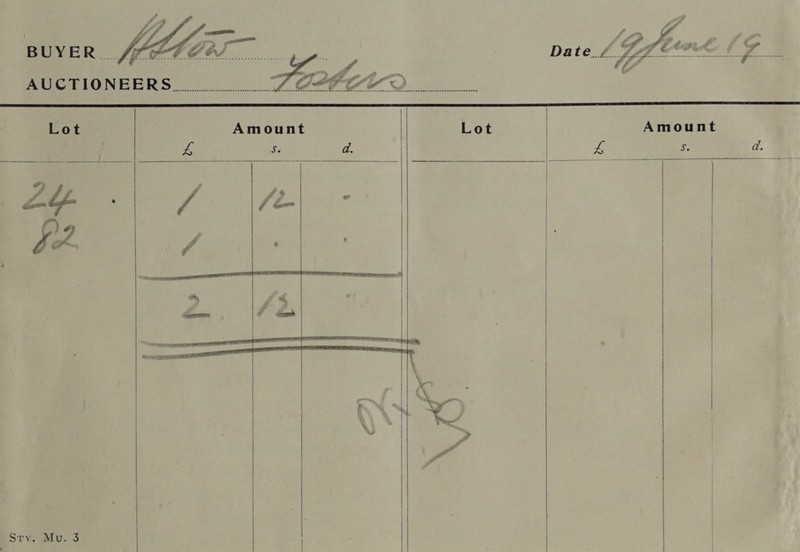 BUYER
Date 19 June 19
AUCTIONEERS Fosters
Lot Amount Lot Amount
£ s. d. £ s. d.
24 . 1 12 -
82 1 . .
2 12 "
Sty. Mu. 3